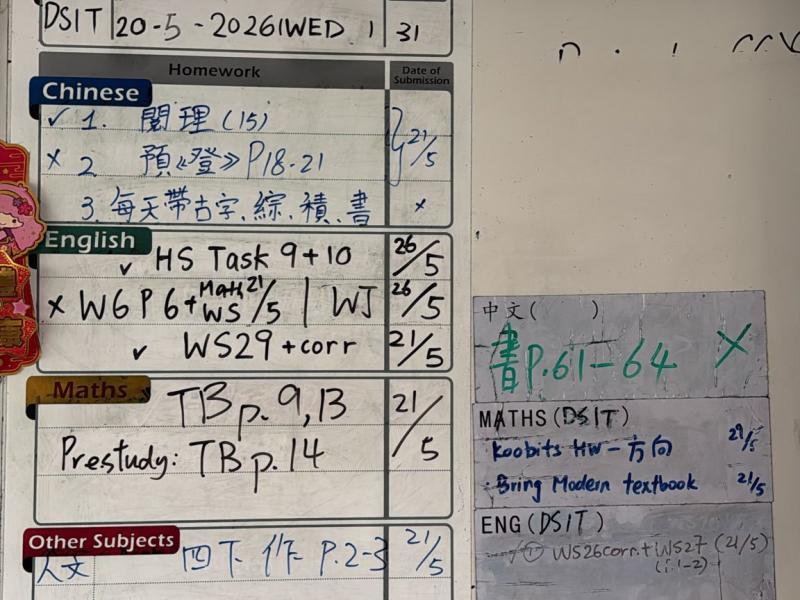 DSIT 20-5-2026 WED 31
Homework Date of Submission
Chinese
✓ 1. 閱理(15) 21/5
× 2 預《登》P18-21
3. 每天帶古字、綜、積、書 ×
English
✓ HS Task 9+10 26/5
× WG P6+ Math WS 21/5 | WJ 26/5
✓ WS29 +corr 21/5
Maths
TB p. 9,13 21/5
Prestudy: TB p.14
Other Subjects
人文 四下 作 P.2-3 21/5
中文( )
書P.61-64 ×
MATHS (DSIT)
Koobits HW - 方向 29/5
· Bring Modern textbook 21/5
ENG (DSIT)
① WS26corr.+WS27 (21/5)